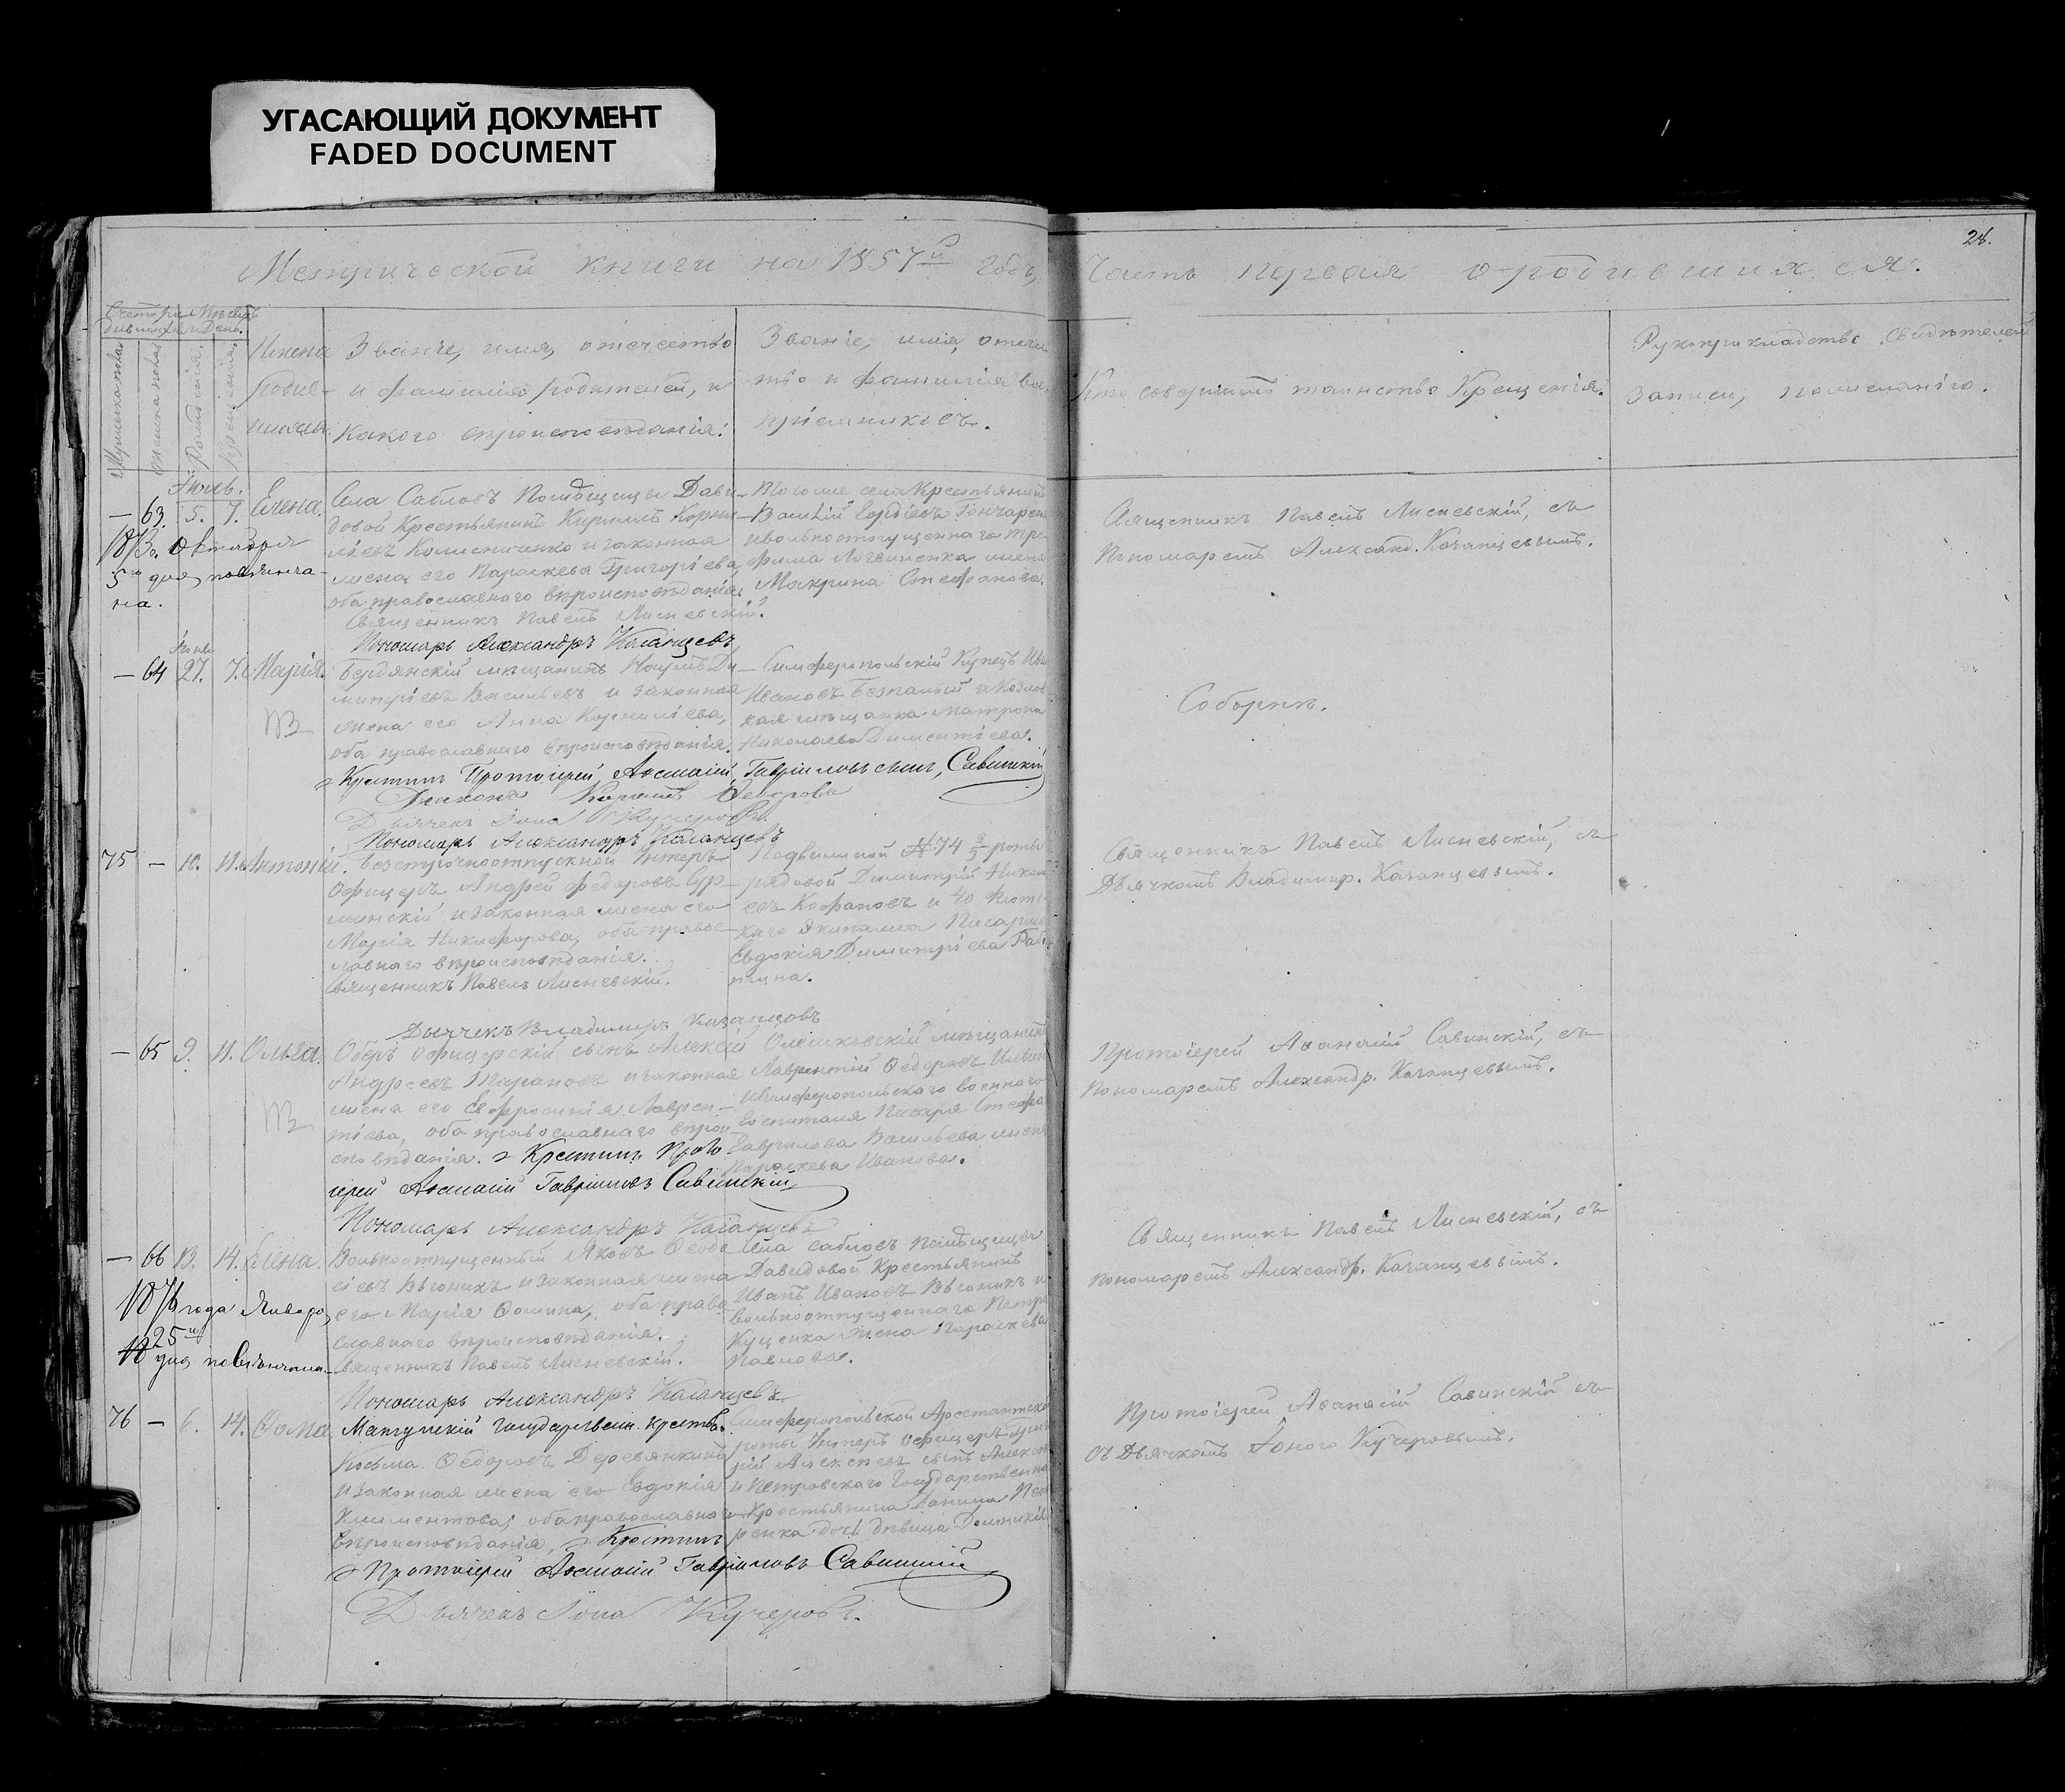 УГАСАЮЩИЙ ДОКУМЕНТ
FADED DOCUMENT
28.
Метрической книги на 1857й годъ,
Часть первая о родившихся.
Мужеска пола
женска пола
Рожденія.
Крещенія.
Имена
родив-
шихся.
Званіе, имя, отечество
и фамилія родителей, и
какого вѣроисповѣданія.
Званіе, имя, отече-
ство и фамилія вос-
пріемниковъ.
Кто совершалъ таинство Крещенія.
Рукоприкладство свидѣтелей
записи, по желанію.
Іюль.
— 63. 5. 7. Елена.
5го дня повѣнча-
на.
Села Сабловъ Помѣщицы Дави-
довой Крестьянинъ Кириллъ Корни-
ліевъ Колисниченко и законная
жена его Параскева Григоріева,
оба православнаго вѣроисповѣданія.
Священникъ Павелъ Лисневскій.
Пономарь Александръ Казанцевъ
Тогоже села Крестьянинъ
Василій Гордіевъ Гончарен
и вольноотпущеннаго Тро-
фима Логвиненка жена
Макрина Стефанова.
Священникъ Павелъ Лисневскій, съ
Пономаремъ Александ. Казанцевымъ.
— 64 27. 7. Марія.
Бердянскій мѣщанинъ Наумъ Ди-
митріевъ Васильевъ и законная
жена его Анна Корниліева,
оба православнаго вѣроисповѣданія.
Симферопольскій Купецъ Ива
Ивановъ Безпалый и Козлов
кая мѣщанка Матрона
Николаева Диментіева.
Крестилъ Протоіерей Аѳанасій Гавріиловъ сынъ, Савинскій
Діаконъ Кириллъ Ѳедоровъ
Дьячекъ Іона Кучеровъ.
Пономарь Александръ Казанцевъ
Соборнѣ.
75 — 10. 11. Антоній.
Безсрочноотпускной Унтеръ
Офицеръ Андрей Федоровъ
и законная жена его
Марія Никифорова, оба право-
славнаго вѣроисповѣданія.
Священникъ Павелъ Лисневскій.
Дьячекъ Владимиръ Казанцовъ
Подвижной № 74 роты
рядовой Димитрій
и 40 Флотс
каго Экипажа Писаря
Евдокія Димитріева
Священникъ Павелъ Лисневскій, съ
Дьячкомъ Владимир. Казанцевымъ.
— 65 9. 11. Ольга.
Оберъ офицерскій сынъ Алексѣй
Андреевъ Тарановъ и законная
жена его Евфросинія Лаврен-
тіева, оба православнаго вѣрои
сповѣданія. Крестилъ Прото
іерей Аѳанасій Гавріиловъ Савинскій
Пономарь Александръ Казанцевъ
Олешковскій мѣщанинъ
Лаврентій Ѳедоровъ
и Симферопольскаго военнаго
госпиталя Писаря Стефа
Гаврилова Васильева жена
Параскева Иванова.
Протоіерей Аѳанасій Савинскій, съ
Пономаремъ Александр. Казанцевымъ.
— 66 13. 14. Елена.
187 года Января
25го
дня повѣнчана.
Вольноотпущенный Яковъ Ѳедо
сіевъ Вѣтникъ и законная жена
его Марія Ѳомина, оба право
славнаго вѣроисповѣданія.
Священникъ Павелъ Лисневскій.
Пономарь Александръ Казанцевъ
Села Сабловъ помѣщицы
Давидовой Крестьянинъ
Иванъ Ивановъ Вѣтникъ и
вольноотпущеннаго Петра
Куценка жена Параскева
Павлова.
Священникъ Павелъ Лисневскій, съ
пономаремъ Александр. Казанцевымъ.
76 — 6. 14. Ѳома
Мангушскій Государствен. крестьян.
Козьма Ѳедоровъ Деревянкинъ
и законная жена его Евдокія
Климентова, оба православнаго
вѣроисповѣданія, Крестилъ
Протоіерей Аѳанасій Гавріиловъ Савинскій
Дьячекъ Іона Кучеровъ.
Симферопольской Арестантской
роты Унтеръ офицеръ
Алексѣевъ сынъ
и Петровскаго Государственна
Крестьянина Данила
ренка дочь дѣвица Домникія
Протоіерей Аѳанасій Савинскій съ
съ Дьячкомъ Іоною Кучеровымъ.